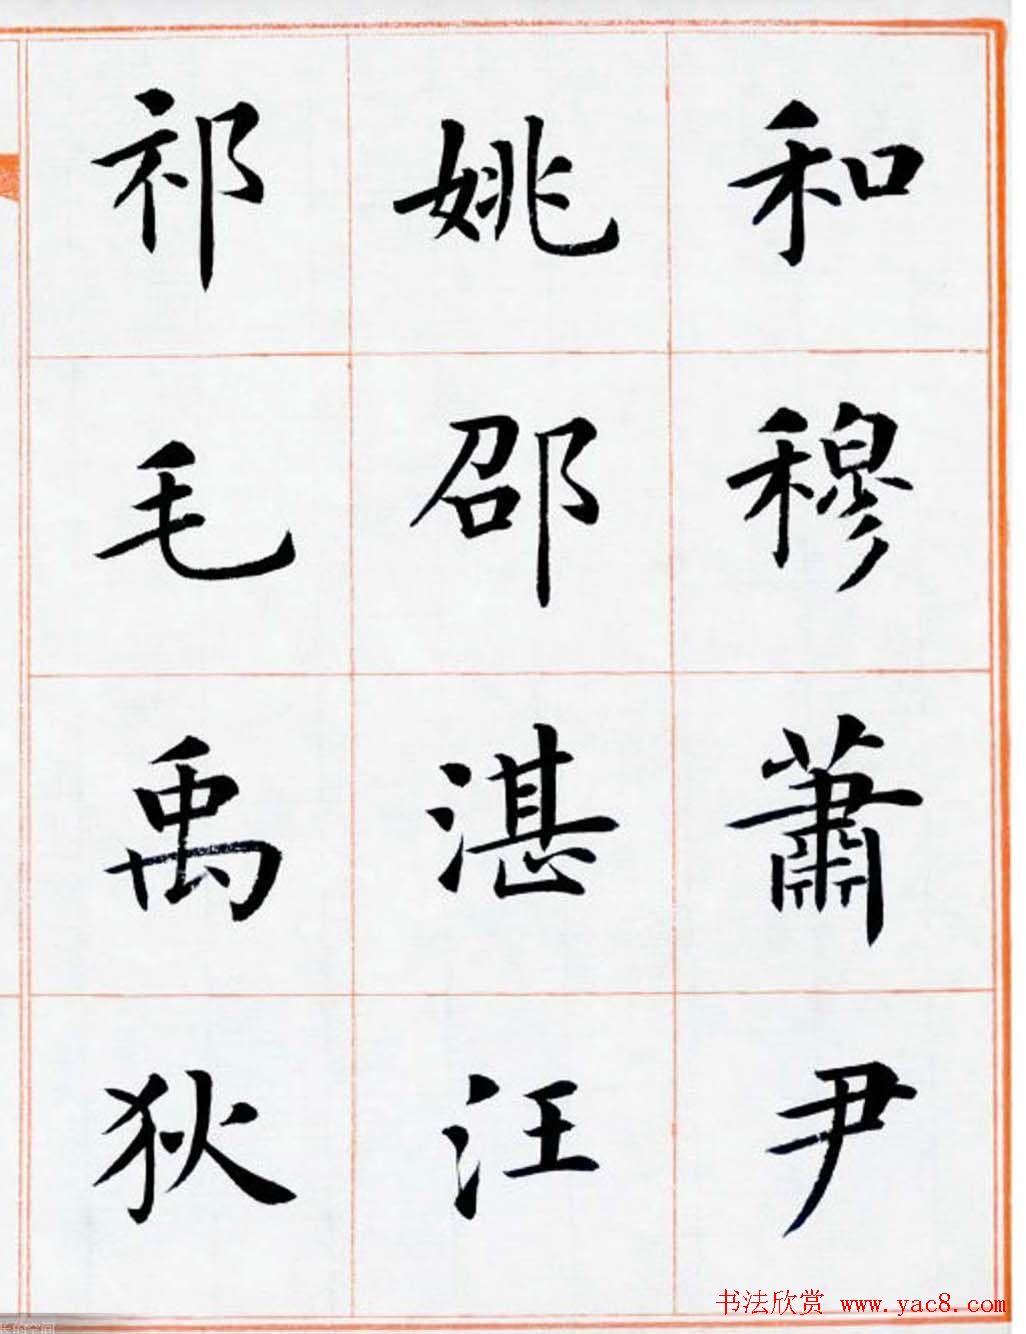 和穆蕭尹
姚邵湛汪
祁毛禹狄
书法欣赏 www.yac8.com